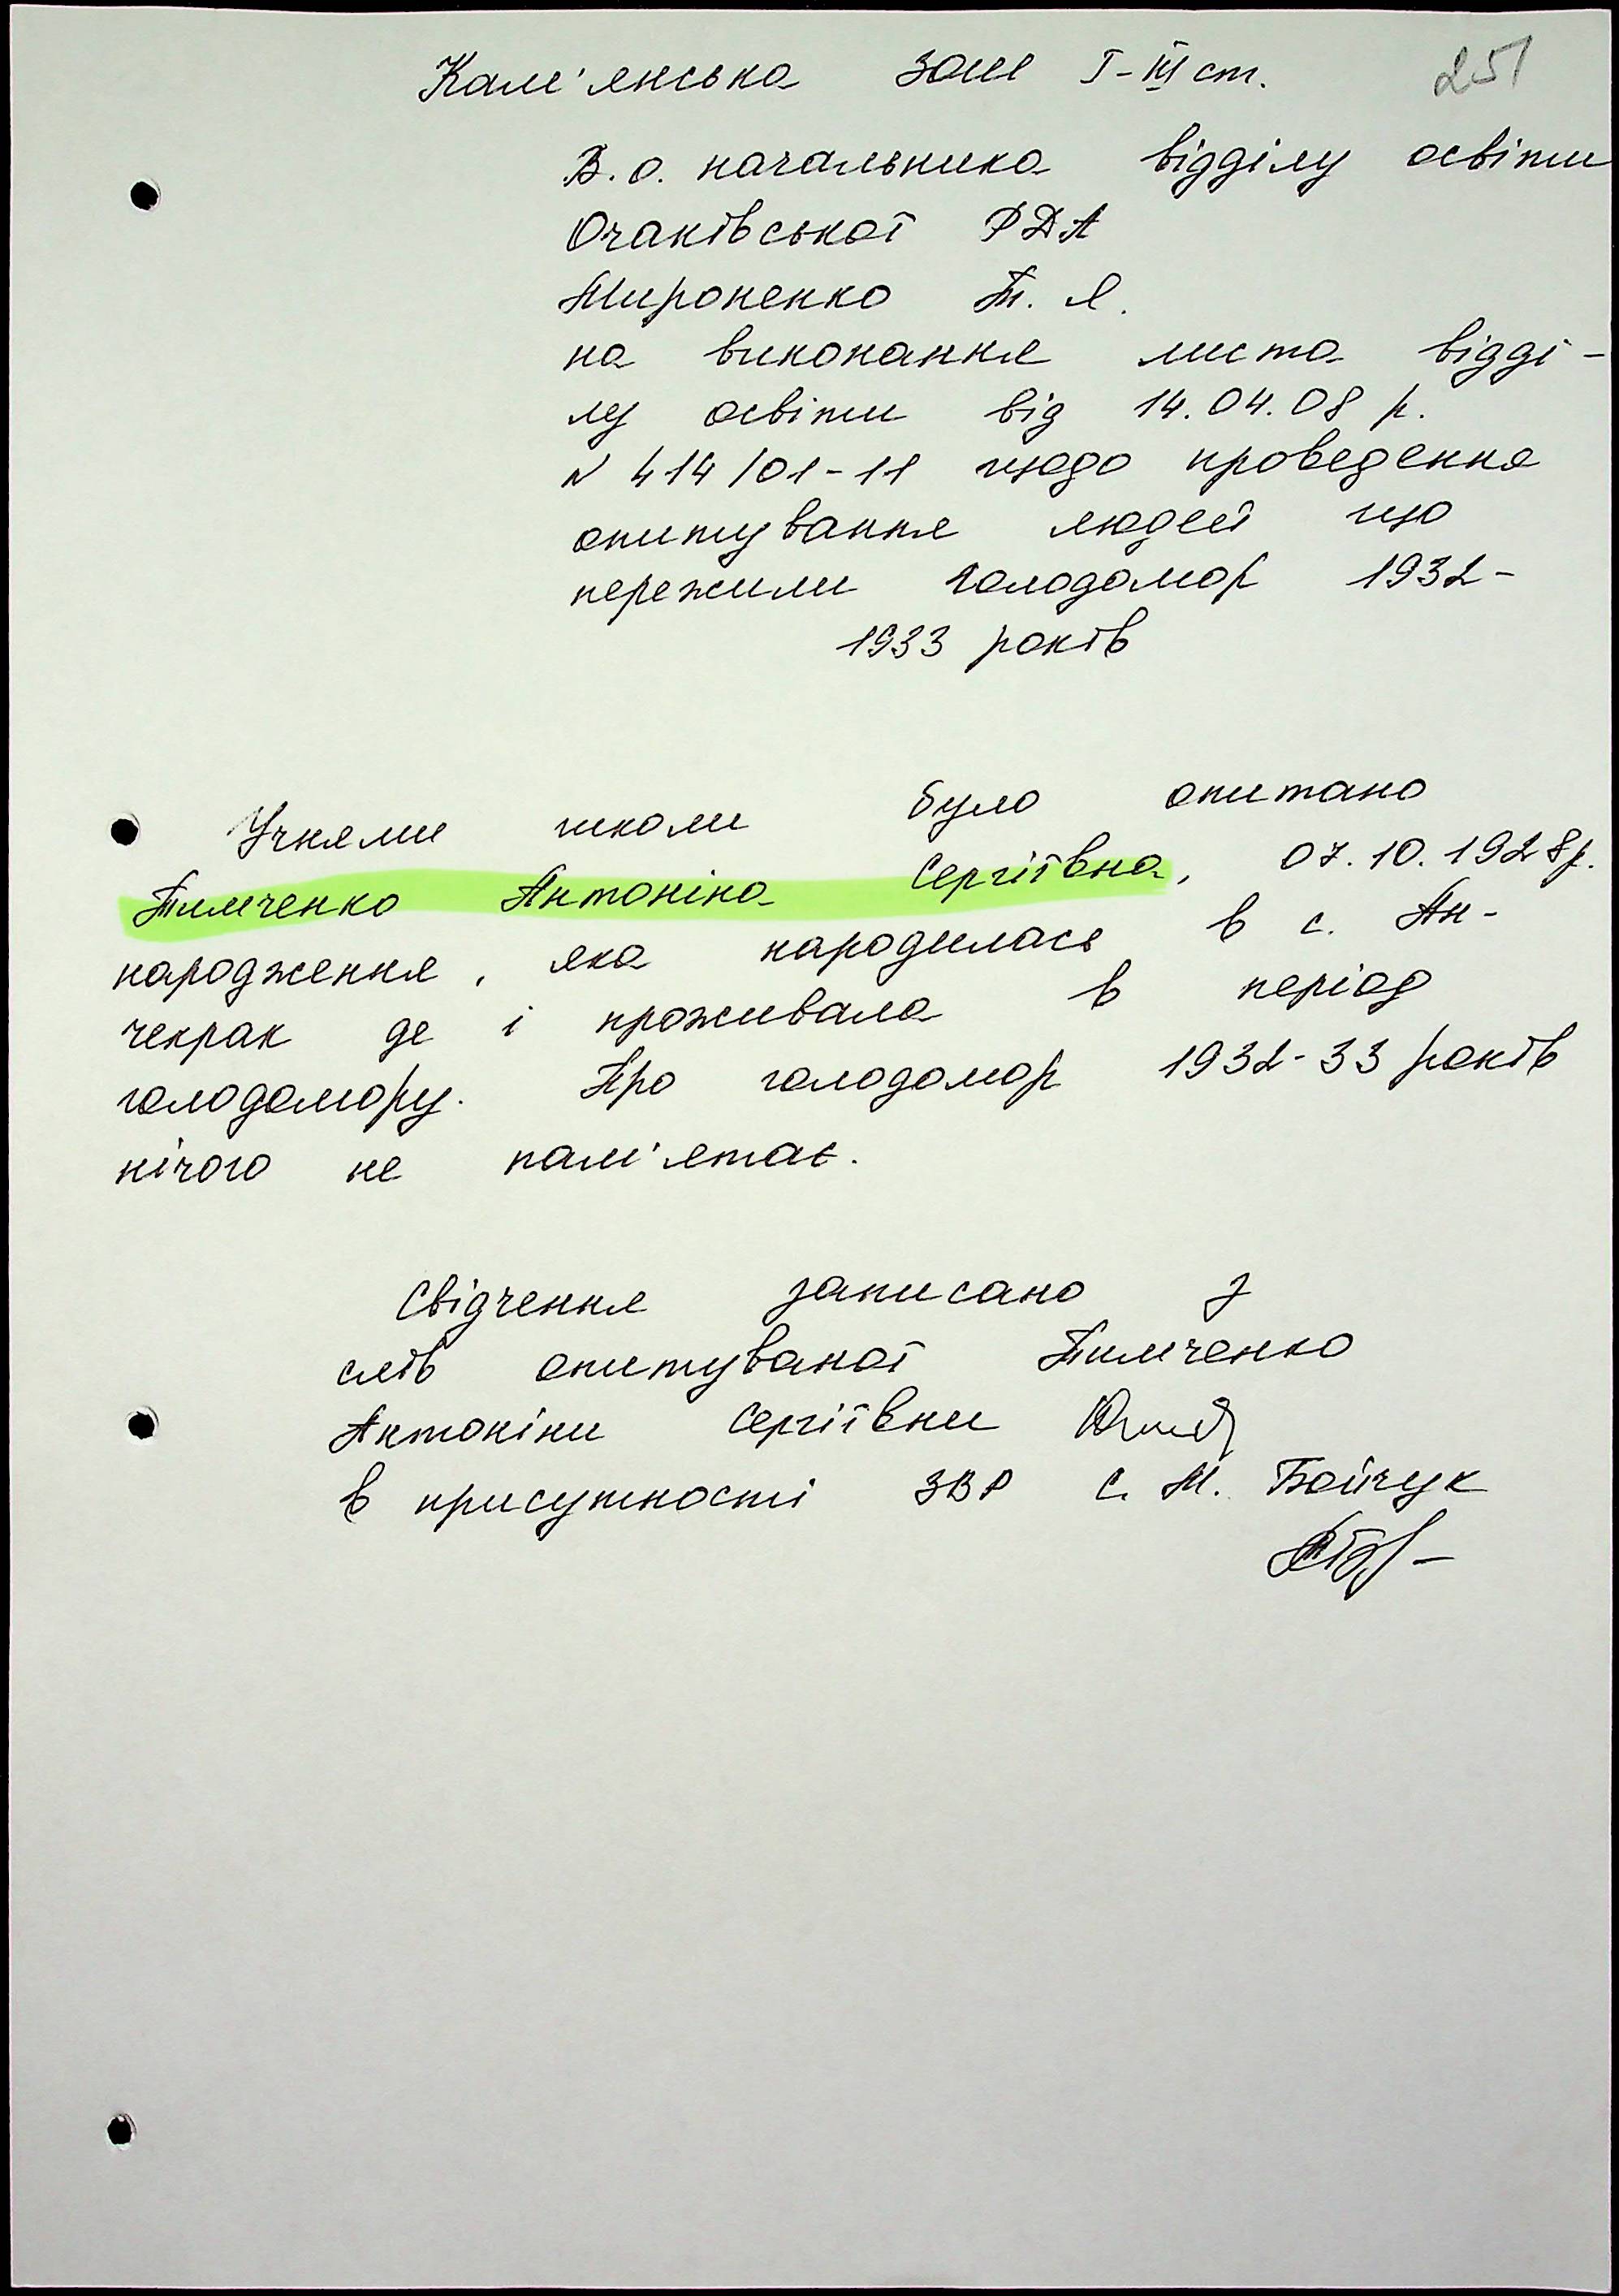 Кам'янська ЗОШ І-ІІІ ст. 251
В. о. начальника відділу освіти
Очаківської РДА
Мироненко Т. Я.
на виконання листа відді-
лу освіти від 14.04.08 р.
N 414/01-11 щодо проведення
опитування людей що
пережили голодомор 1932-
1933 років
Учнями школи було опитано
Тимченко Антоніна Сергіївна, 07.10.1928р.
народження, яка народилась в с. Ан-
чекрак де і проживала в період
голодомору. Про голодомор 1932-33 років
нічого не пам'ятає.
Свідчення записано з
слів опитуваної Тимченко
Антоніни Сергіївни
в присутності ЗВР С. М. Бойчук